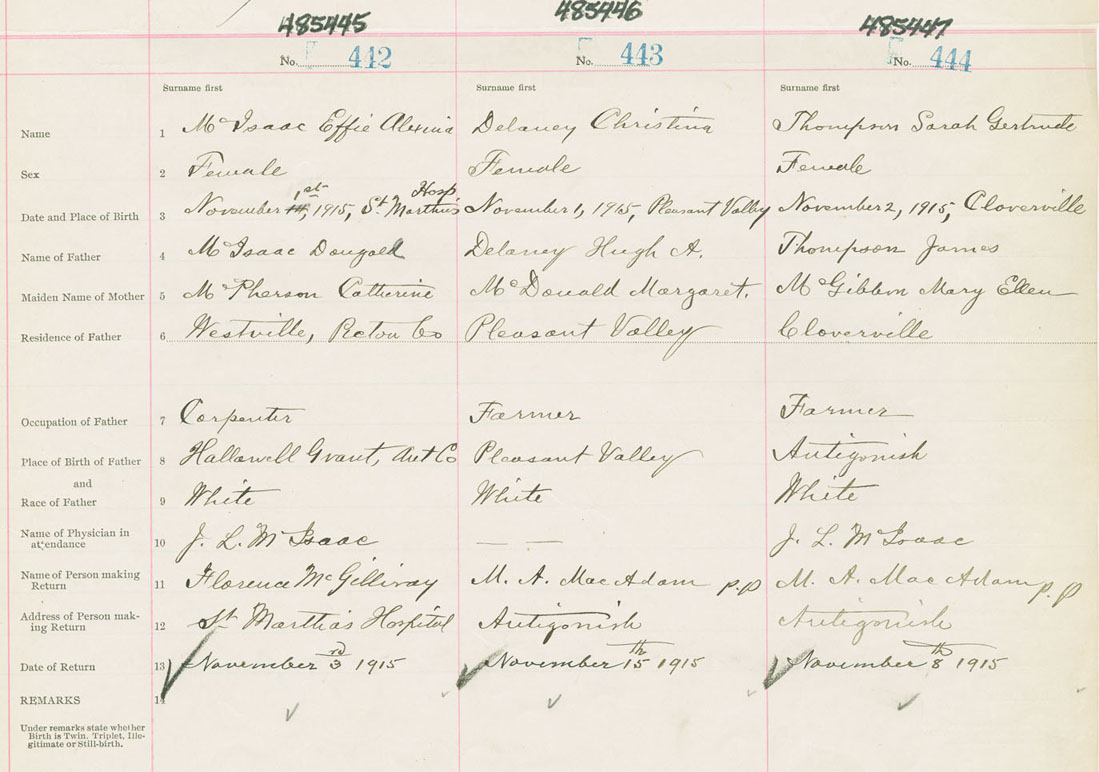 485445 485446 485447
No. 442 No. 443 No. 444
Surname first Surname first Surname first
Name 1 McIsaac Effie Alexina Delaney Christina Thompson Sarah Gertrude
Sex 2 Female Female Female
Date and Place of Birth 3 November 1st, 1915, St Martha's Hosp November 1, 1915, Pleasant Valley November 2, 1915, Cloverville
Name of Father 4 McIsaac Dougald Delaney Hugh A. Thompson James
Maiden Name of Mother 5 McPherson Catherine McDonald Margaret. McGibbon Mary Ellen
Residence of Father 6 Westville, Pictou Co Pleasant Valley Cloverville
Occupation of Father 7 Carpenter Farmer Farmer
Place of Birth of Father 8 Hallowell Grant, Ant Co Pleasant Valley Antigonish
and
Race of Father 9 White White White
Name of Physician in
attendance 10 J. L. McIsaac — — J. L. McIsaac
Name of Person making
Return 11 Florence McGillivray M. A. MacAdam p.p M. A. MacAdam p.p
Address of Person mak-
ing Return 12 St Martha's Hospital Antigonish Antigonish
Date of Return 13 November 3rd 1915 November 15th 1915 November 8th 1915
REMARKS 14
Under remarks state whether
Birth is Twin, Triplet, Ille-
gitimate or Still-birth.